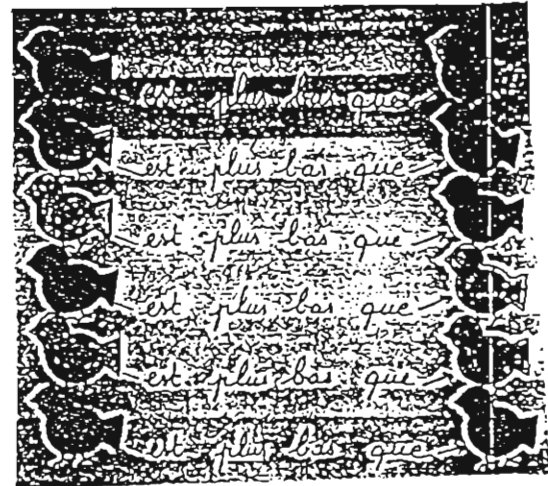 est plus bas que
est plus bas que
est plus bas que
est plus bas que
est plus bas que
est plus bas que